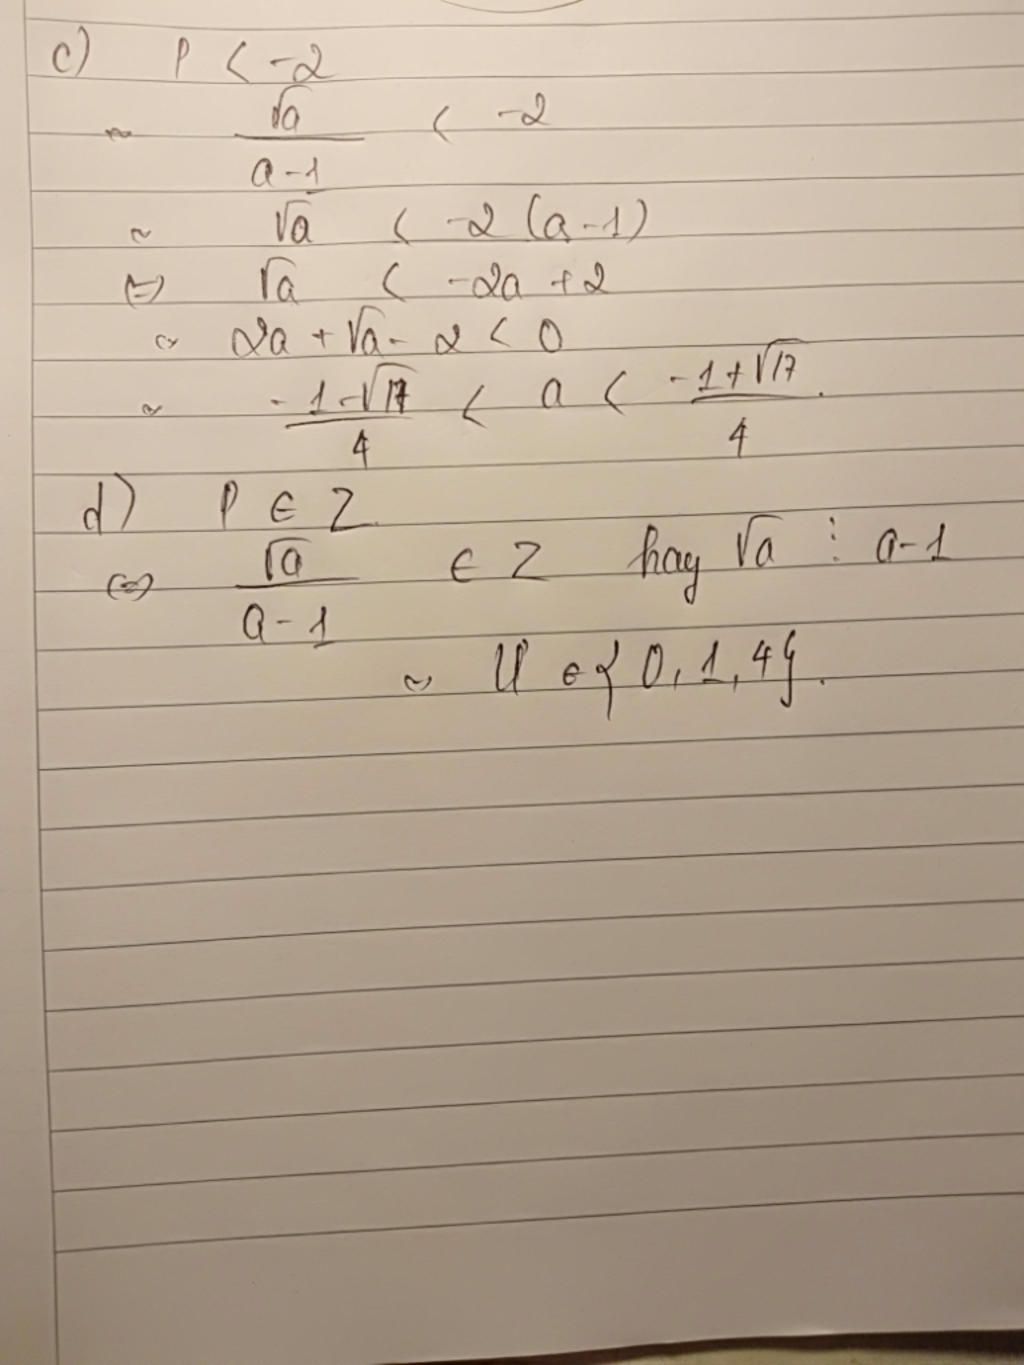 c) P < -2
~ √a / a-1 < -2
~ √a < -2 (a-1)
(=) √a < -2a + 2
~ 2a + √a - 2 < 0
~ -1-√17 / 4 < a < -1+√17 / 4.
d) P ∈ Z
(=) √a / a-1 ∈ Z hay √a ⋮ a-1
~ U ∈ { 0, 1, 4 }.